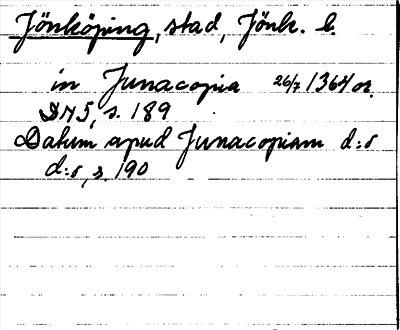 Jönköping, stad, Jönk. l.
in Junacopia 26/7 1364 or.
DN 5, s. 189
Datum apud Junacopiam d:o
d:o, s. 190